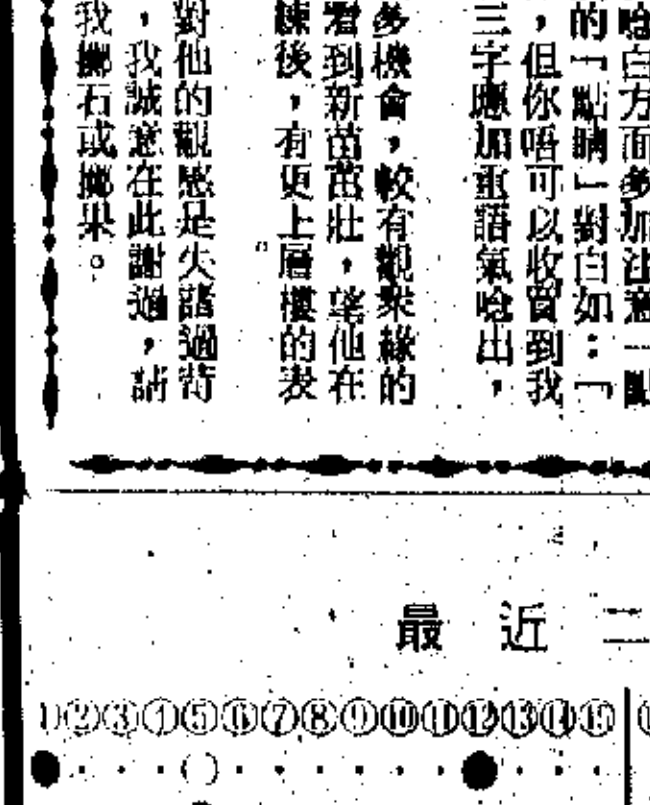 唸白方面多加注意一點
的「點睛」對白如：「
，但你唔可以收買到我
三字應加重語氣唸出，
多機會，較有觀眾緣的
看到新苗茁壯，望他在
練後，有更上層樓的表
對他的觀感是失諸過苛
，我誠意在此謝過，請
我擲石或擲果。
最近二
①②③④⑤⑥⑦⑧⑨⑩⑪⑫⑬⑭⑮
●・・・○・・・・・・●・・・